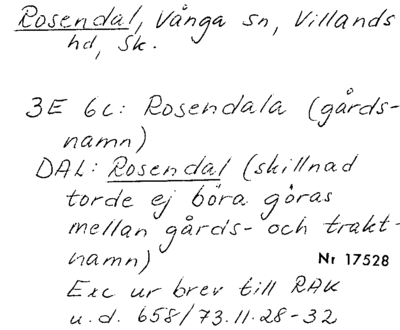 Rosendal, Vånga sn, Villands
hd, Sk.
3E 6c: Rosendala (gårds-
namn)
DAL: Rosendal (skillnad
torde ej böra göras
mellan gårds- och trakt-
namn)
Nr 17528
Exc ur brev till RAK
u.d. 658/73.11.28-32